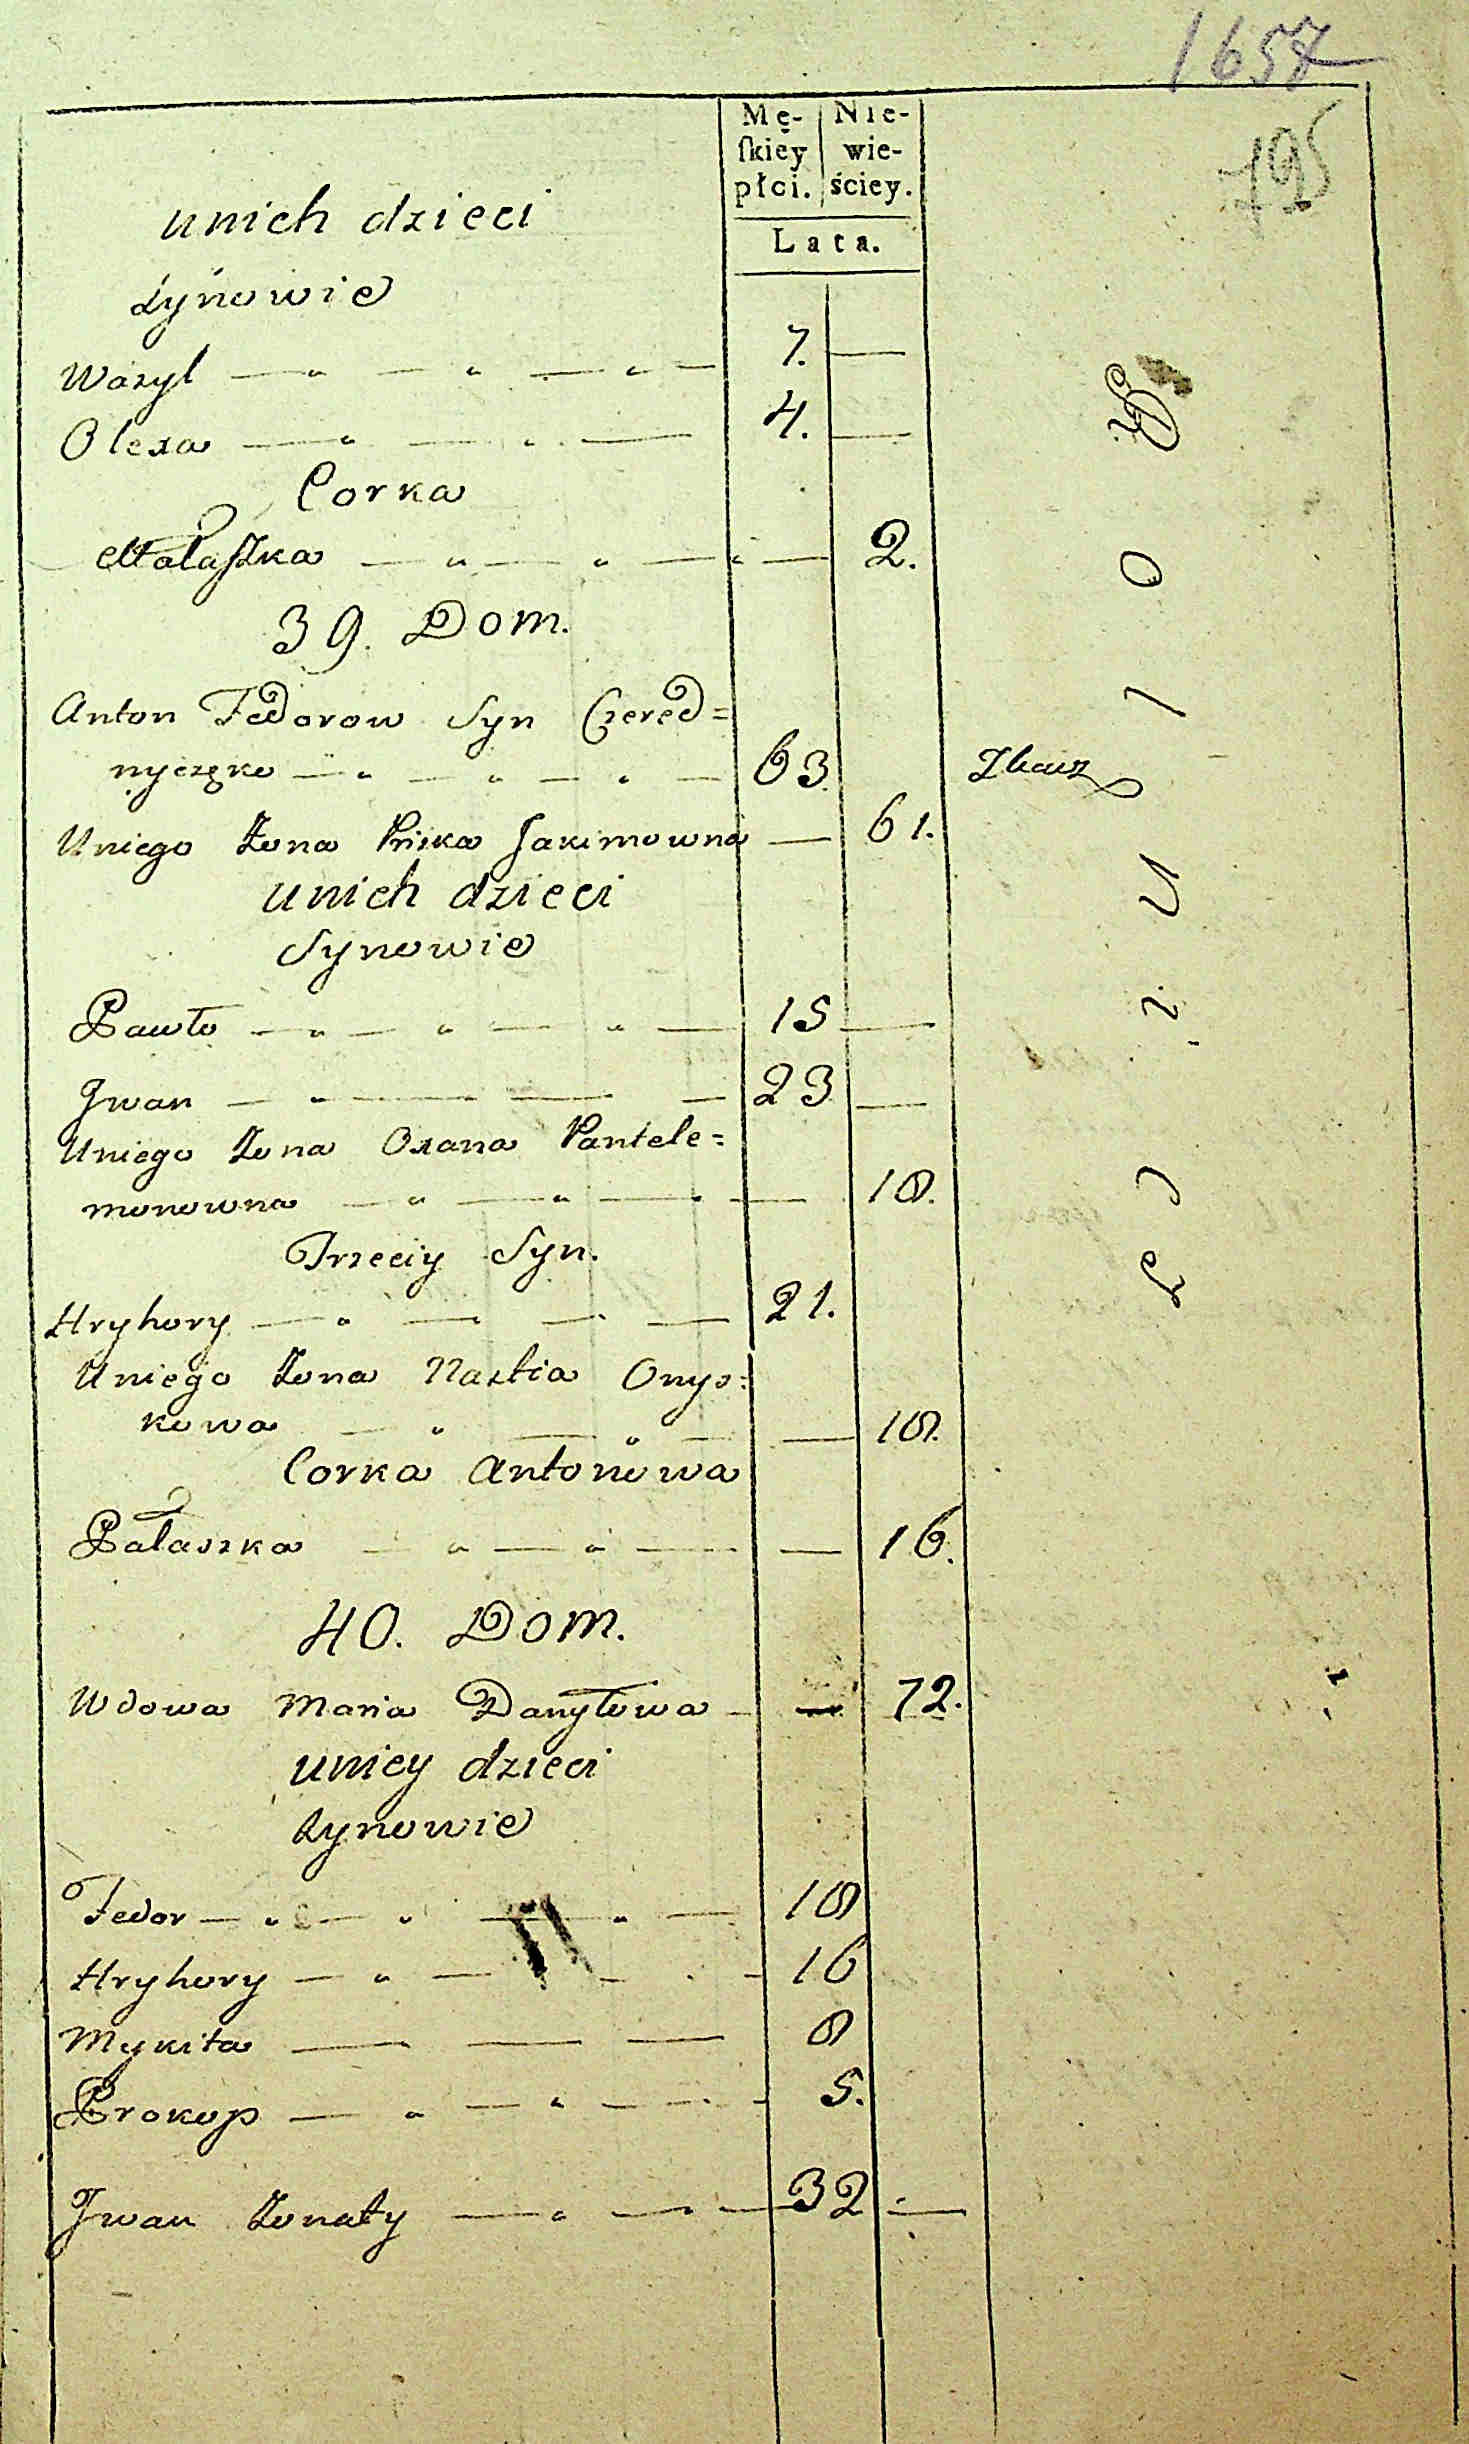 1657
795
Mę-
skiey
płci.
Nie-
wie-
ściey.
Lata.
unich dzieci
Synowie
Wasyl — " — " — " — 7. —
Olexa — " — " — 4. —
Corka
Małaszka — " — " — " — 2.
39. Dom.
Anton Fedorow Syn Czered=
nyczęko — " — " — " — 63.
Uniego Żona Priska Jakimowna — 61.
unich dzieci
Synowie
Pawło — " — " — " — 15 —
Jwan — " — — — 23 —
Uniego Żona Oxana Pantele=
monowna — " — " — " — 18.
Trzeciy Syn.
Hryhory — " — — — 21.
Uniego Żona Nastia Onys=
kowa — " — " — — 18.
Corka Antonowa
Pałaszka — " — " — — 16.
40. Dom.
Wdowa Maria Danyłowa — — 72.
uniey dzieci
Synowie
Fedor — " — " — " — 18
Hryhory — " — — 16
Mykita — — — 8
Prokop — " — " — — 5.
Jwan Żonaty — " — — 32 —